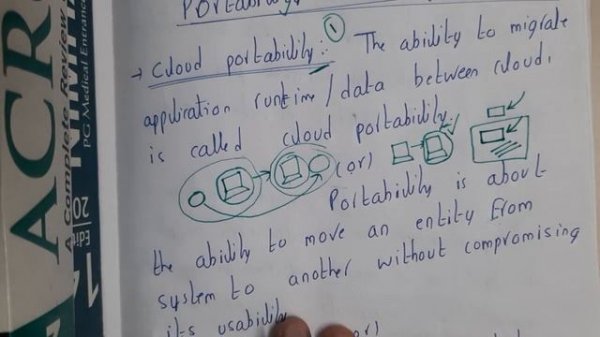 Portability
→ Cloud portability :- ① The ability to migrate
application runtime / data between cloud,
is called cloud portability.
(or)
Portability is about
the ability to move an entity from
system to another without compromising
its usability
(or)
A Complete Review
PG Medical Entrance
Edit
20